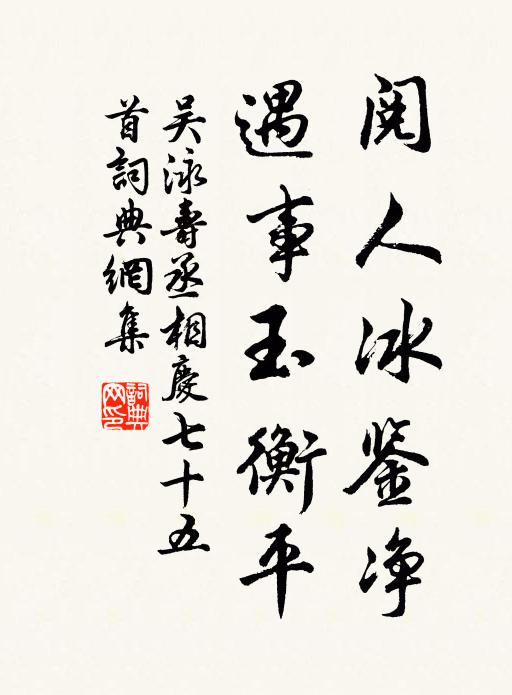 阅人冰鉴净
遇事玉衡平
吴泳壽丞相慶七十五
首詞典網集
詞典
网印